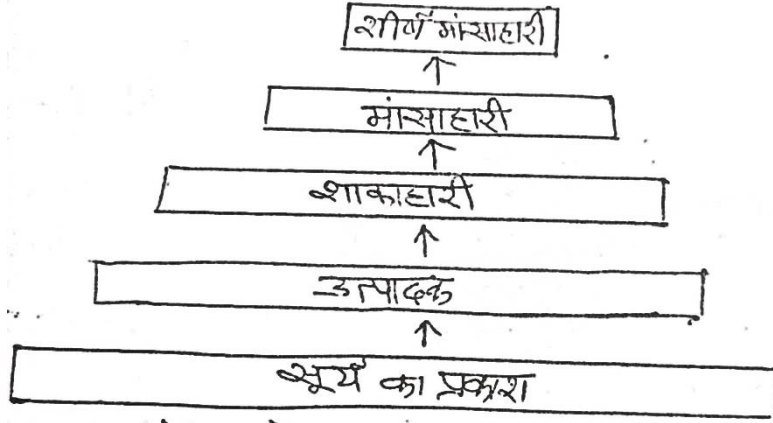 शीर्ष मांसाहारी
मांसाहारी
शाकाहारी
उत्पादक
सूर्य का प्रकाश